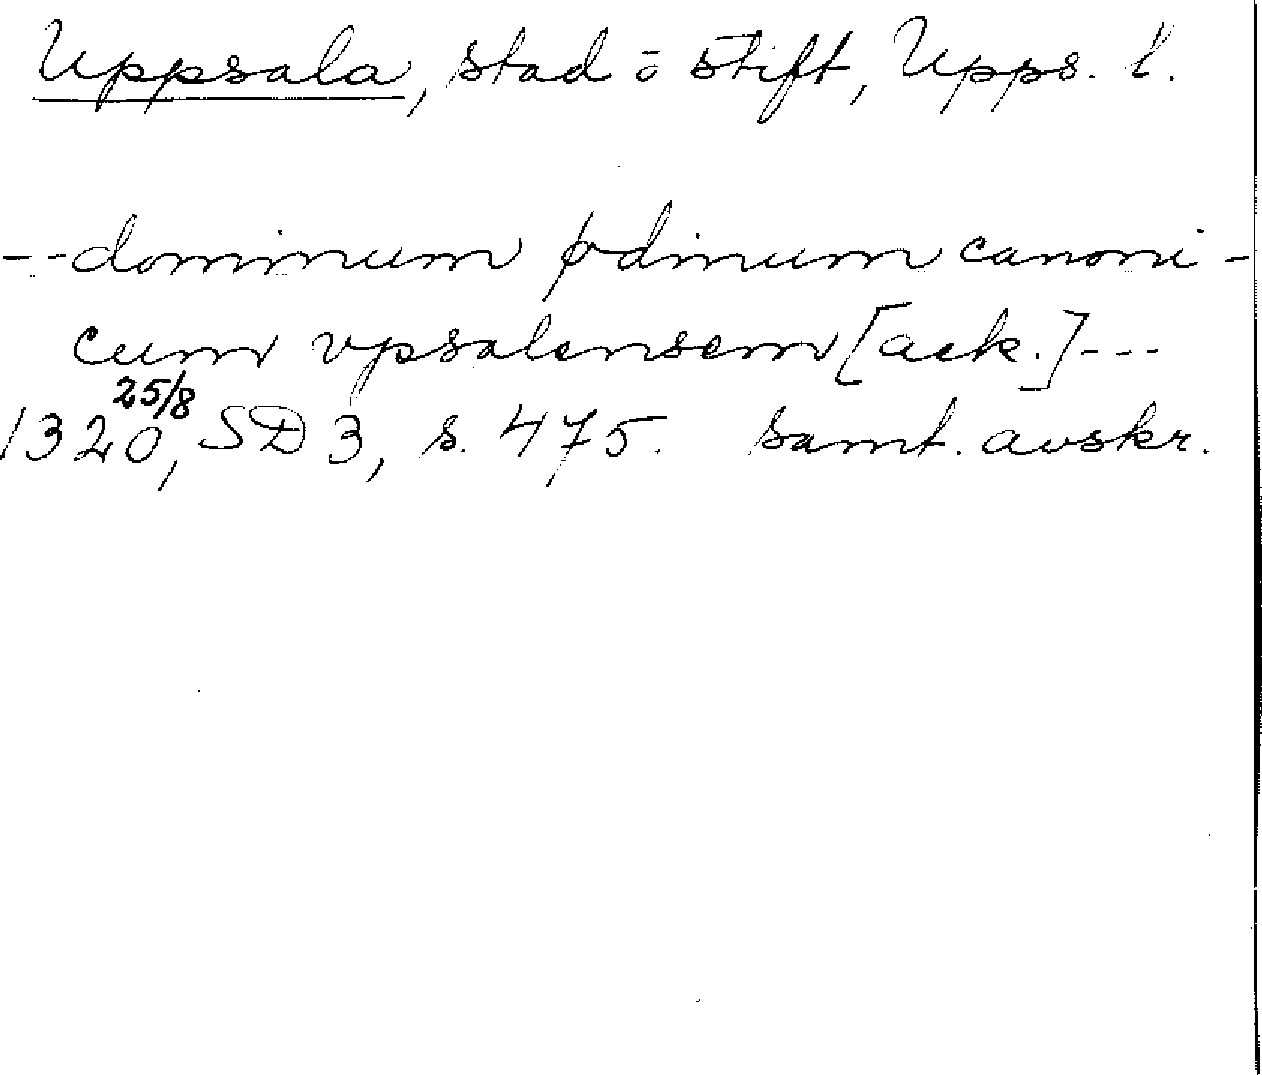 Uppsala, stad ō stift, Upps. l.
--dominum ødinum canoni-
cum vpsalensem [ack.]---
1320 25/8, SD 3, s. 475. samt. avskr.